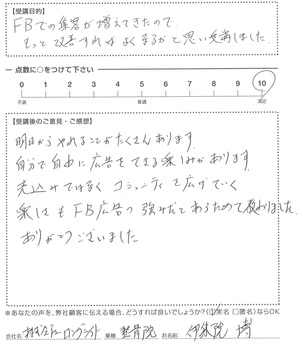 【受講目的】
FBでの集客が増えてきたので、
もっと改善すればよくなるかと思い受講しました。
一 点数に○をつけて下さい
0 1 2 3 4 5 6 7 8 9 10
不満 普通 満足
【受講後のご意見・ご感想】
明日からやれることがたくさんあります。
自分で自由に広告をできる楽しみがあります。
売込みではなく コミュニティを広げていく
楽しさもFB広告の強みだとあらためて教わりました。
ありがとうございました
※あなたの声を、弊社顧客に伝える場合、どうすれば良いでしょうか?(①実名 □匿名)ならOK
会社名: 株式会社ロングライト 業種: 整骨院 お名前: 伊集院 博